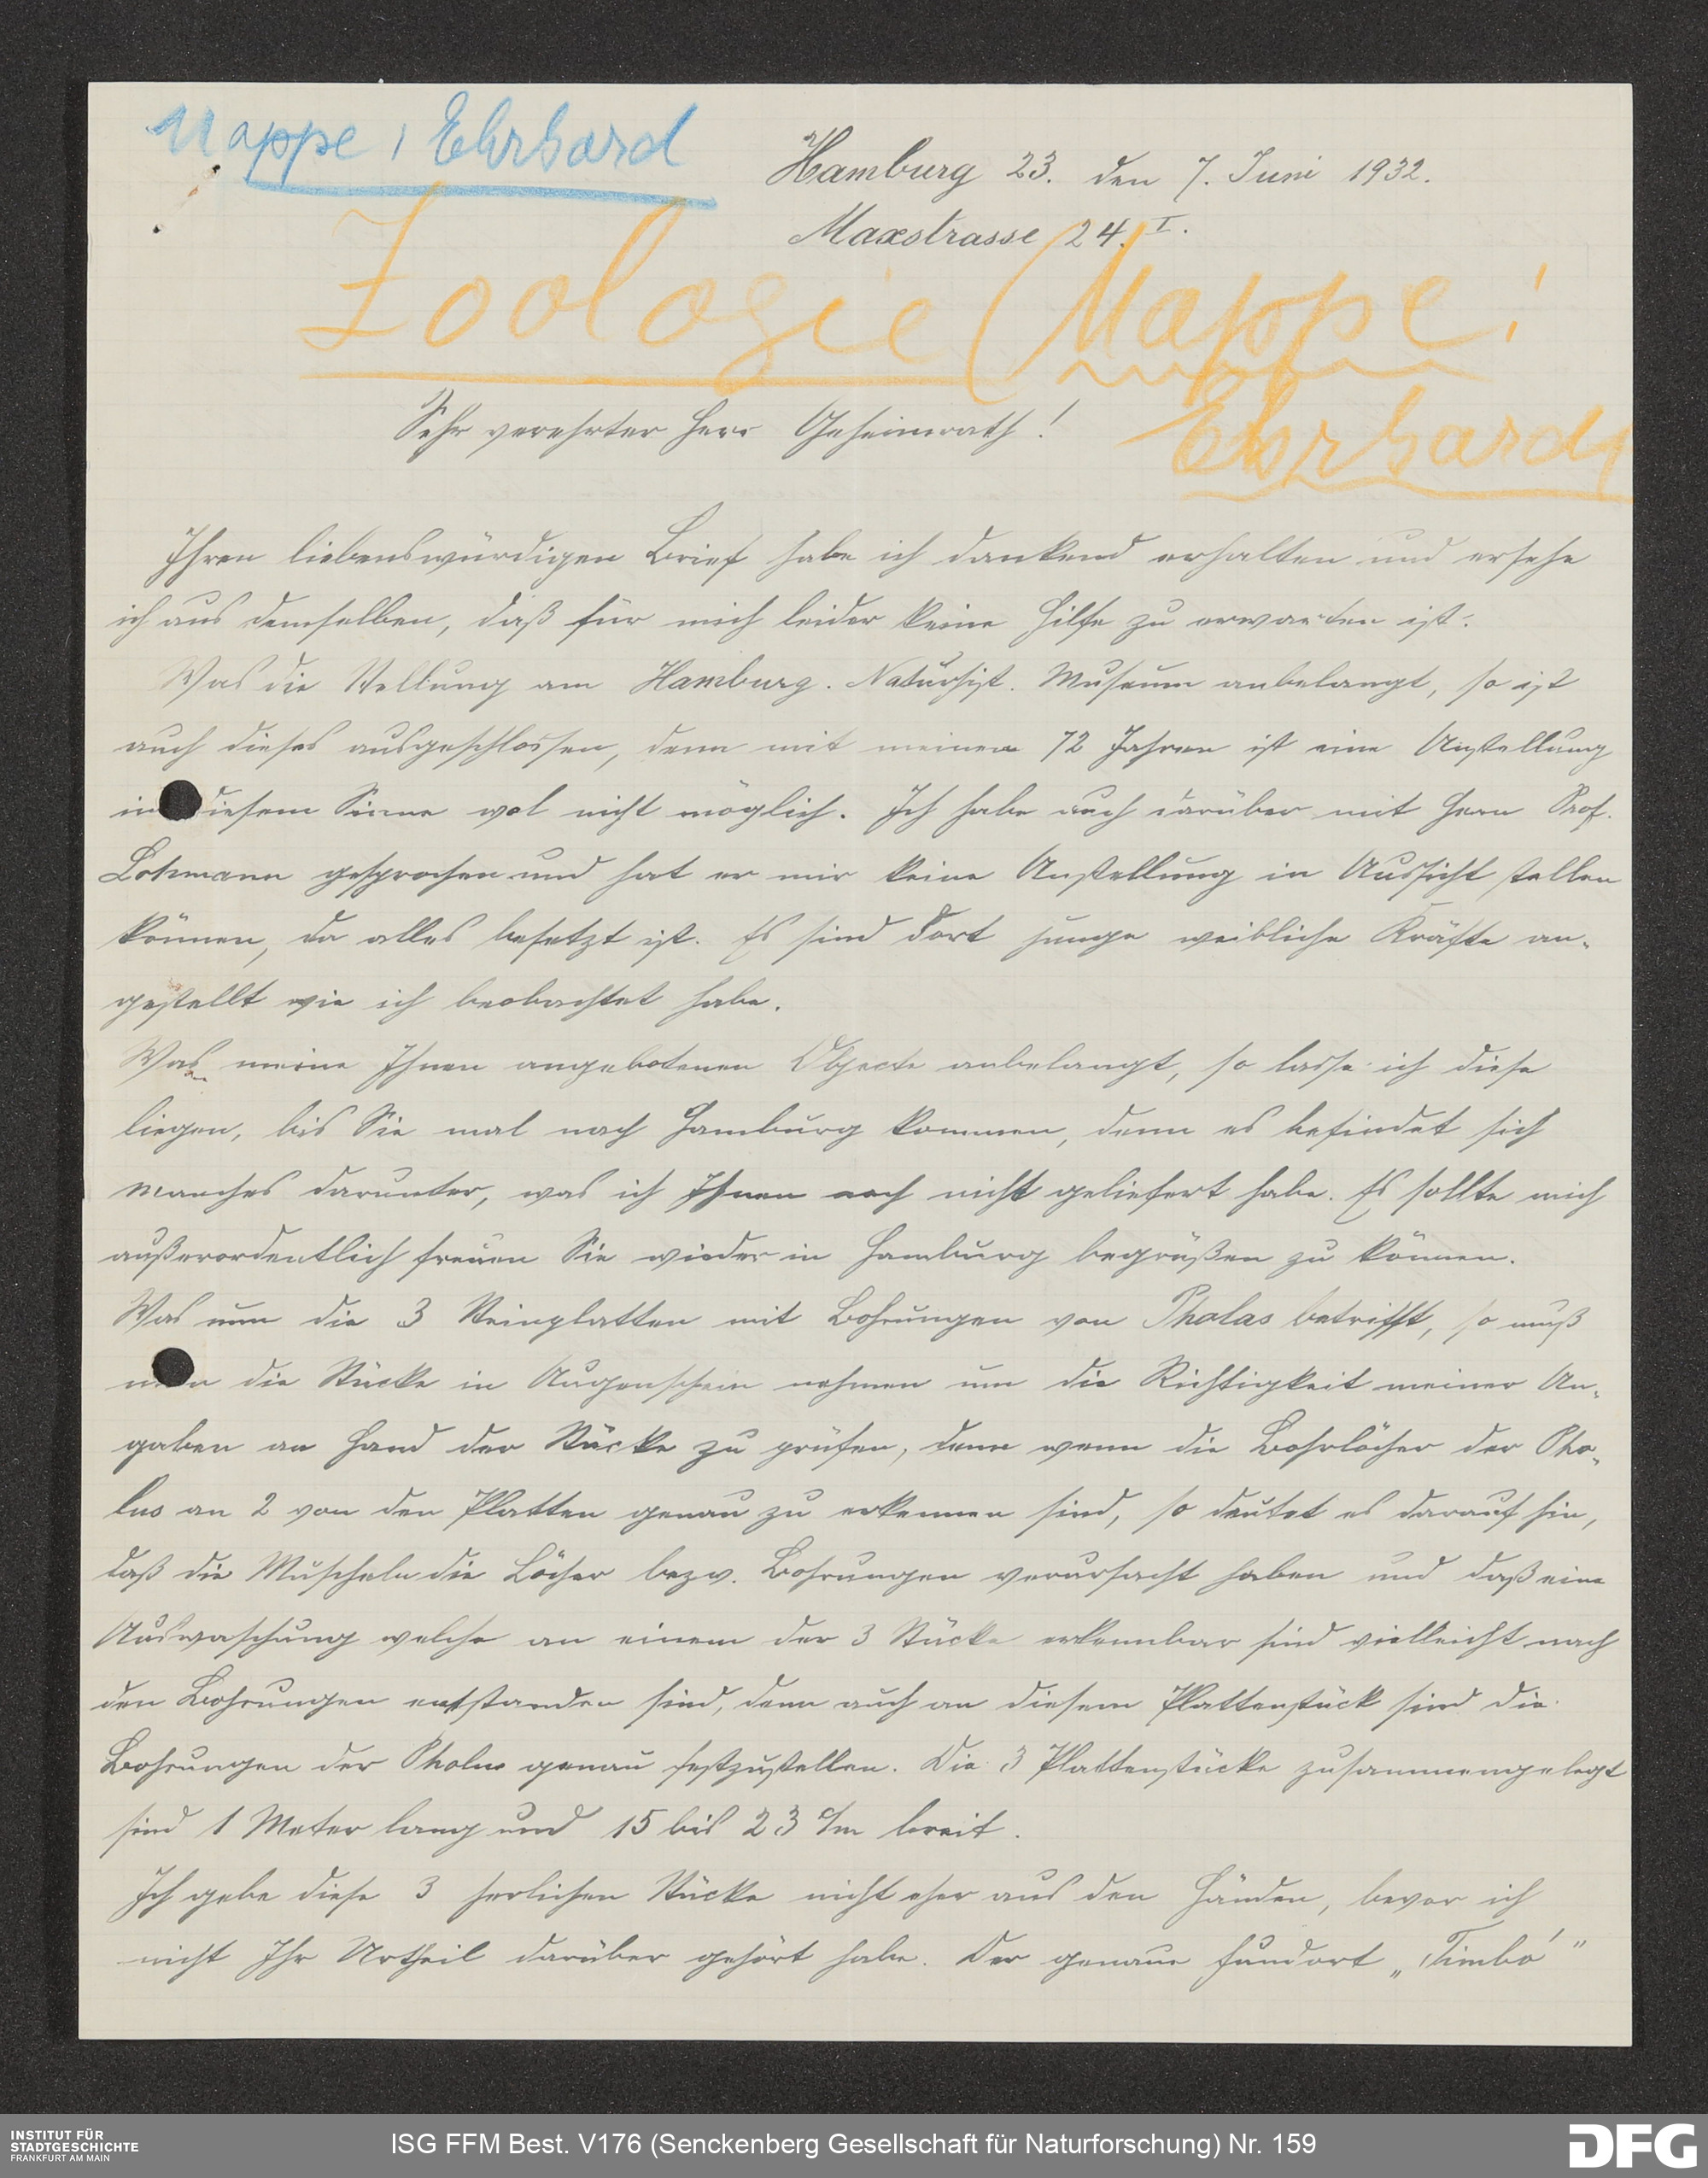 Mappe, Ehrhard
Hamburg 23. den 7. Juni 1932.
Maxstrasse 24. I.
Zoologie (Mappe:
Ehrhardt
Sehr verehrter Herr Geheimrath!
Ihren liebenswürdigen Brief habe ich dankend erhalten und ersehe
ich aus demselben, daß für mich leider keine Hilfe zu erwarten ist.
Was die Stellung am Hamburg. Naturhist. Museum anbelangt, so ist
auch dieses ausgeschlossen, denn mit meinen 72 Jahren ist eine Anstellung
in diesem Sinne wol nicht möglich. Ich habe auch darüber mit Herrn Prof.
Lohmann gesprochen und hat er mir keine Anstellung in Aussicht stellen
können, da alles besetzt ist. Es sind dort junge weibliche Kräfte an-
gestellt wie ich beobachtet habe.
Was meine Ihnen angebotenen Objecte anbelangt, so lasse ich diese
liegen, bis Sie mal nach Hamburg kommen, denn es befindet sich
manches darunter, was ich Ihnen noch nicht geliefert habe. Es sollte mich
außerordentlich freuen Sie wieder in Hamburg begrüßen zu können.
Was nun die 3 Steinplatten mit Bohrungen von Pholas betrifft, so muß
man die Stücke in Augenschein nehmen um die Richtigkeit meiner An-
gaben an Hand der Stücke zu prüfen, denn wenn die Bohrlöcher der Pho-
las an 2 von den Platten genau zu erkennen sind, so deutet es darauf hin,
daß die Muscheln die Löcher bezw. Bohrungen verursacht haben und daß eine
Auswaschung welche an einem der 3 Stücke erkennbar sind vielleicht nach
den Bohrungen entstanden sind, denn auch an diesem Plattenstück sind die
Bohrungen der Pholas genau festzustellen. Die 3 Plattenstücke zusammengelegt
sind 1 Meter lang und 15 bis 23 c/m breit.
Ich gebe diese 3 herlichen Stücke nicht eher aus den Händen, bevor ich
nicht Ihr Urtheil darüber gehört habe. Der genaue Fundort „Timbó"
INSTITUT FÜR
STADTGESCHICHTE
FRANKFURT AM MAIN
ISG FFM Best. V176 (Senckenberg Gesellschaft für Naturforschung) Nr. 159
DFG